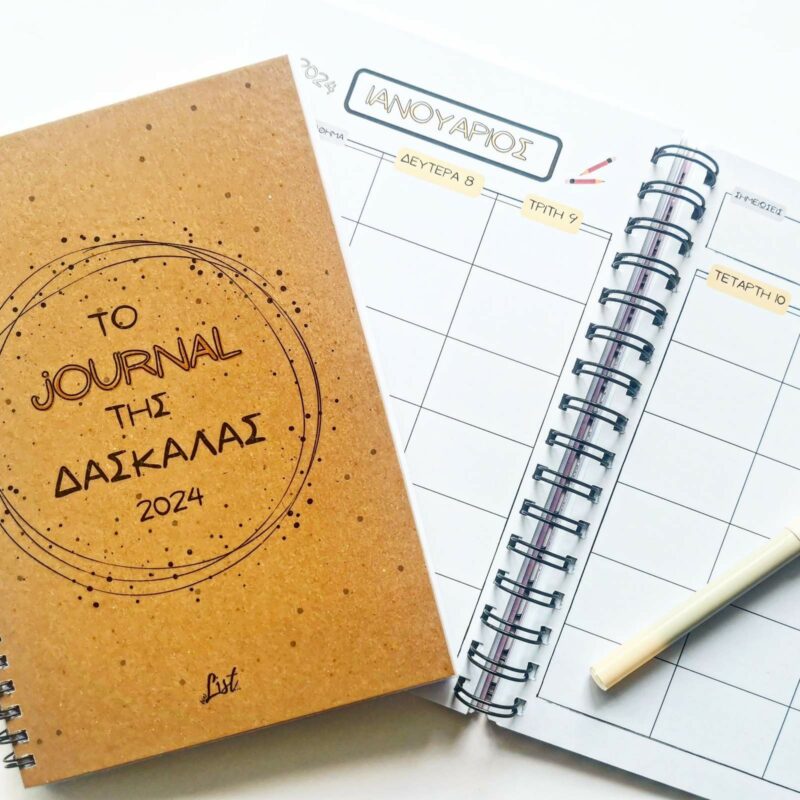 ΤΟ
JOURNAL
ΤΗΣ
ΔΑΣΚΑΛΑΣ
2024
List
2024
ΙΑΝΟΥΑΡΙΟΣ
ΔΕΥΤΕΡΑ 8
ΤΡΙΤΗ 9
ΣΗΜΕΙΩΣΕΙΣ
ΤΕΤΑΡΤΗ 10